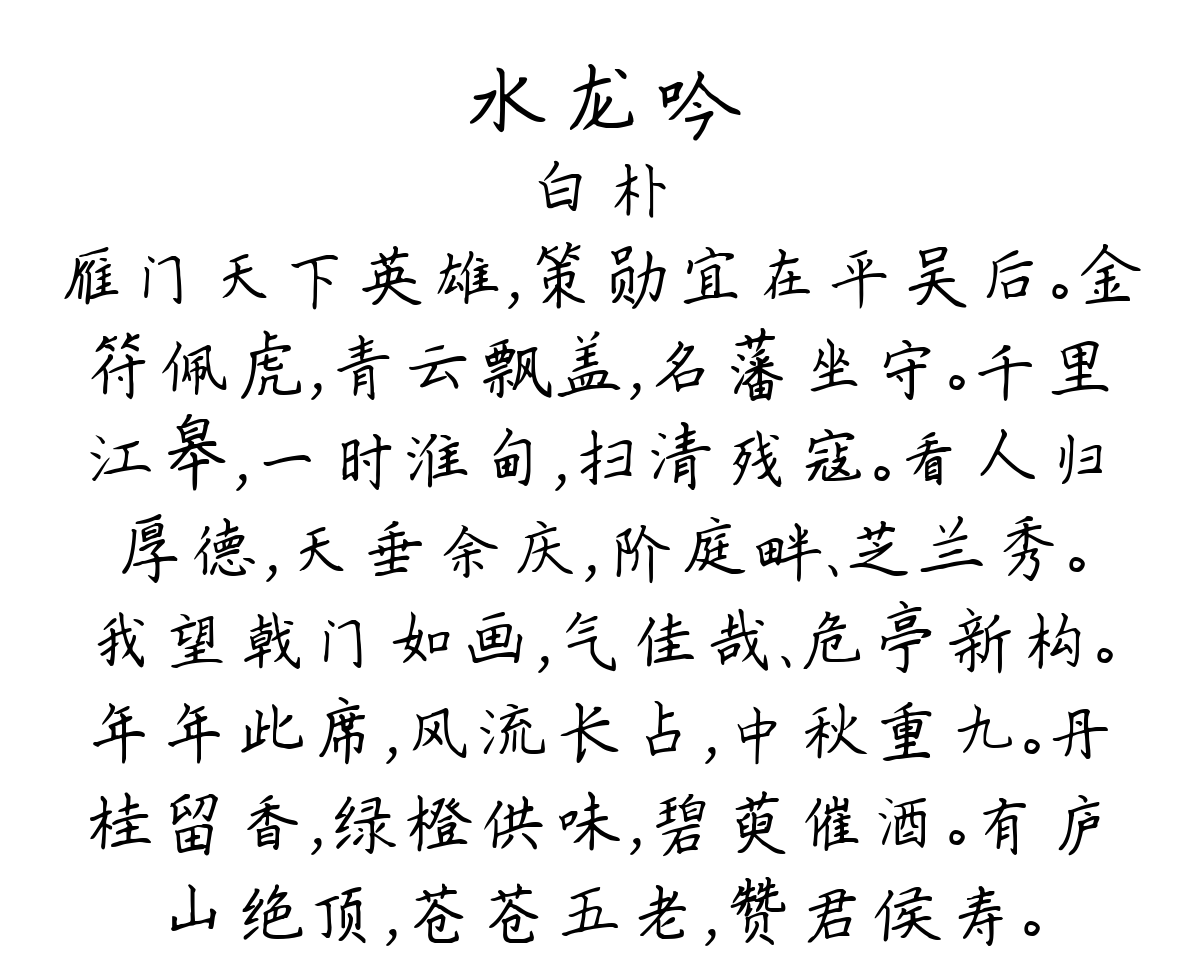 水龙吟
白朴
雁门天下英雄,策勋宜在平吴后。金
符佩虎,青云飘盖,名藩坐守。千里
江皋,一时淮甸,扫清残寇。看人归
厚德,天垂余庆,阶庭畔、芝兰秀。
我望戟门如画,气佳哉、危亭新构。
年年此席,风流长占,中秋重九。丹
桂留香,绿橙供味,碧萸催酒。有庐
山绝顶,苍苍五老,赞君侯寿。